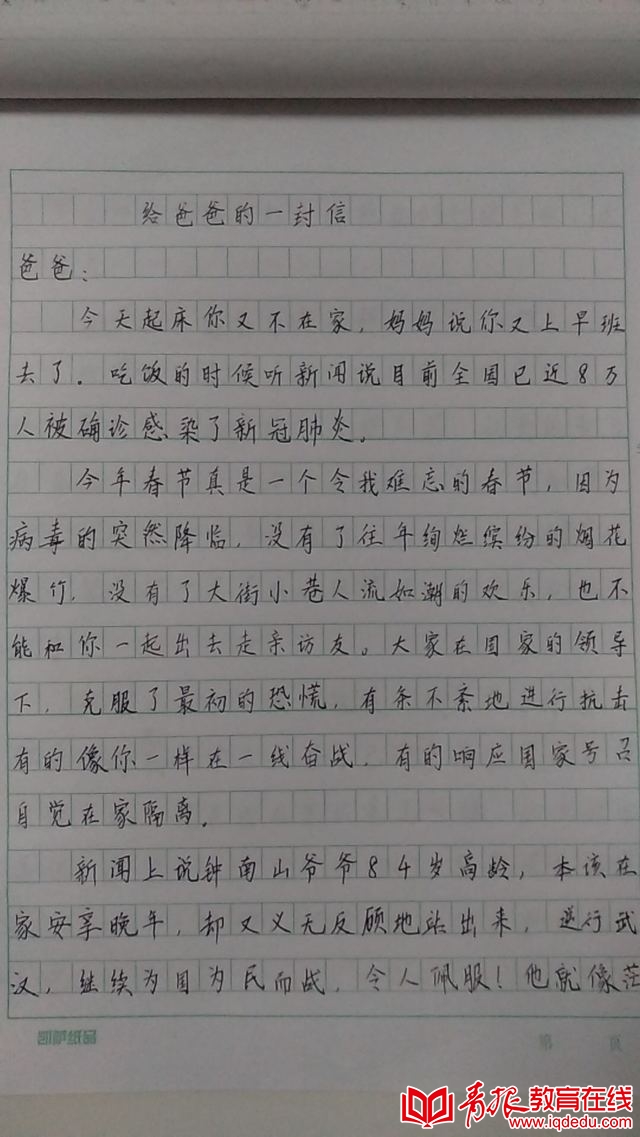 给爸爸的一封信
爸爸：
今天起床你又不在家，妈妈说你又上早班
去了。吃饭的时候听新闻说目前全国已近8万
人被确诊感染了新冠肺炎。
今年春节真是一个令我难忘的春节，因为
病毒的突然降临，没有了往年绚烂缤纷的烟花
爆竹，没有了大街小巷人流如潮的欢乐，也不
能和你一起出去走亲访友。大家在国家的领导
下，克服了最初的恐慌，有条不紊地进行抗击
有的像你一样在一线奋战，有的响应国家号召
自觉在家隔离。
新闻上说钟南山爷爷84岁高龄，本该在
家安享晚年，却又义无反顾地站出来，逆行武
汉，继续为国为民而战，令人佩服！他就像茫
第 页
青报教育在线
www.iqdedu.com